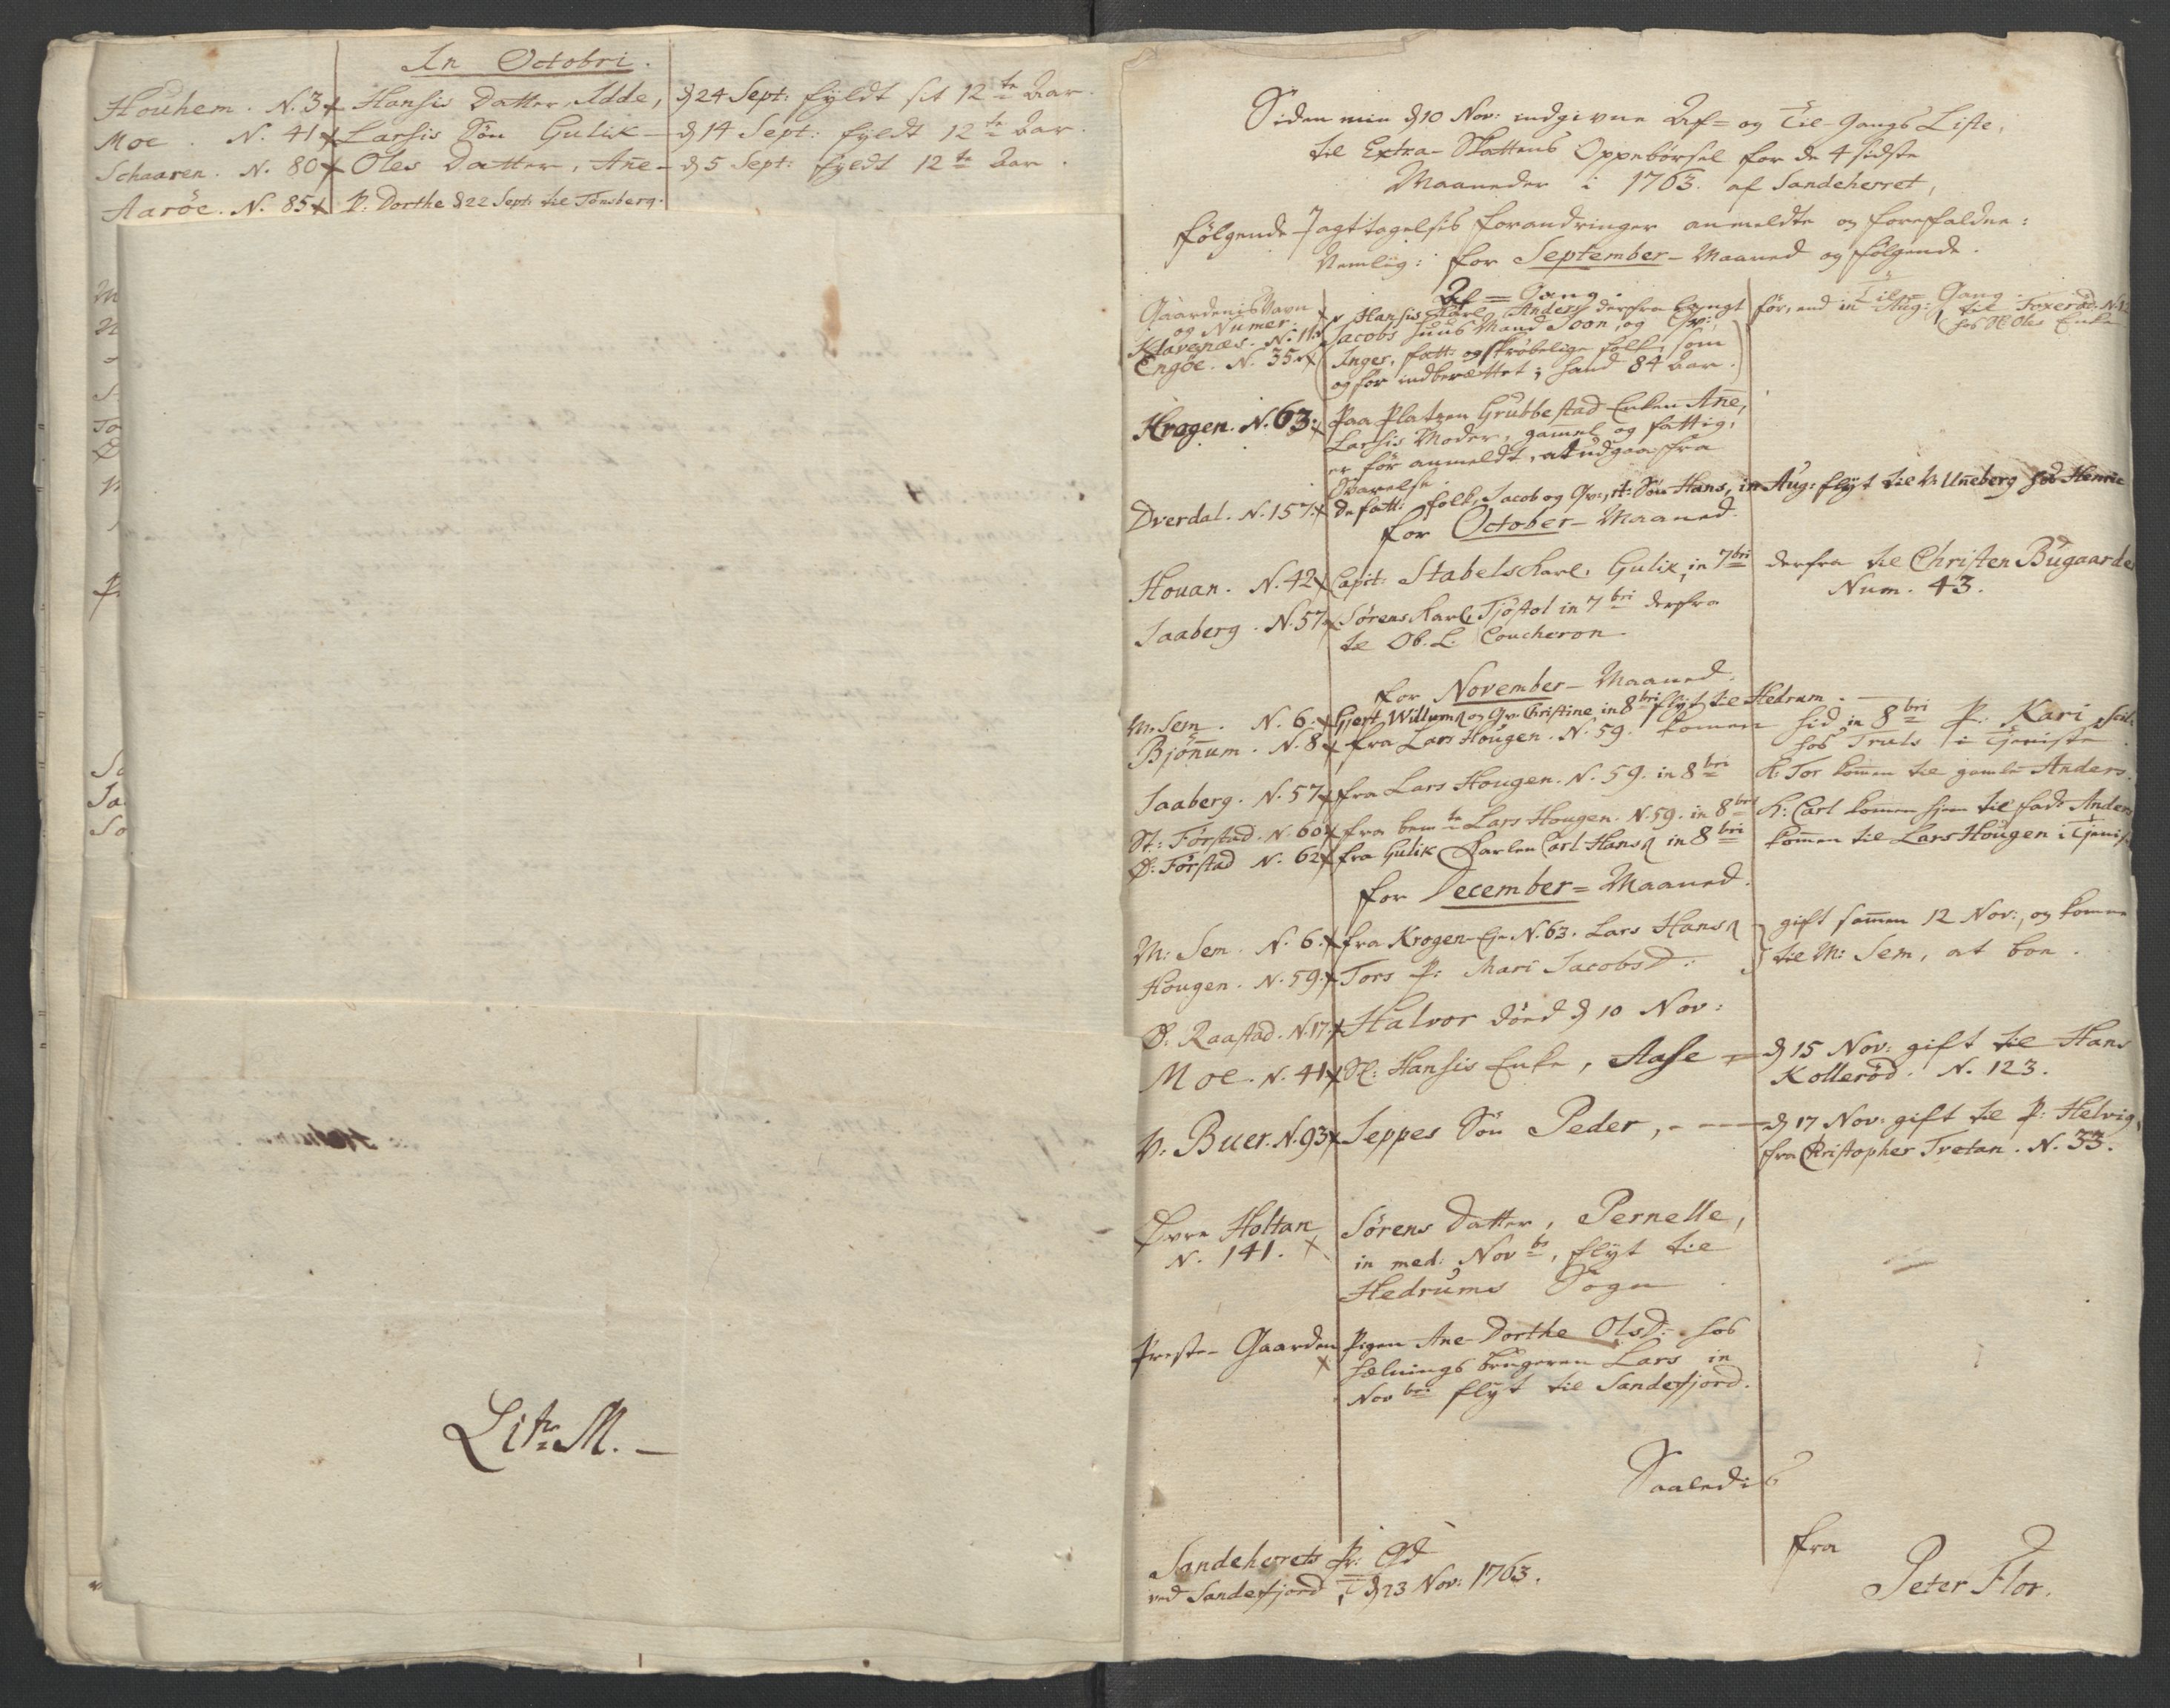 In Octobri.
Houhem. N. 3 x Hansis Datter, Idde, d 24 Sept: fyldt sit 12te Aar.
Moe. N. 41 x Larsis Søn Gulik - d 14 Sept: fyldt 12te Aar.
Schaaren. N. 80 x Oles Datter, Añe - d 5 Sept: fyldt 12te Aar.
Aarøe. N. 85 x P. Dorthe d 22 Sept: til Tønsberg.
Litr. M. -
Siden min d 10 Nov: indgivne Af= og Til-Gangs Liste,
til Extra-Skattens Oppebørsel for de 4 sidste
Maaneder i 1763. af Sandeherret,
følgende Jagttagelsis forandringer anmeldte og forefaldne:
Nemlig: for September- Maaned og følgende.
Gaardenis Navn og Numer.
Af= Gang.
Til= Gang.
Klavenæs. N. 11. x Hansis Karl Anders derfra langt før, end in Aug: til Foxerød. N. 12
hos Sl Oles Enke
Engøe. N. 35. x Jacobs Huus Mand Soon, og Qv:,
Inger, fatt: og skrøbelige folk, som
og før indberættet; hand 84 Aar.
Kragen. N. 63: x Paa Platzen Grubbestad Enken Añe,
Larsis Moder, gamel og fattig,
er før anmeldt, at udgaa fra
Svarelse.
Dverdal. N. 157. x De fatt: folk, Jacob og Qv:, st: Søn Hans, in Aug: flyt til N: Uñeberg hos Henric
for October- Maaned.
Houan. N. 42 x Capit: Stabels Karl. Gulik, in 7bri derfra til Christen Bugaarde
Num. 43.
Jaaberg. N. 57 x Sørens Karl Tjøstol in 7bri derfra
til Ob. L. Coucheron
for November- Maaned.
M: Sem. N. 6. x Gjert Willums og Qv. Christine in 8bri flyt til Hedrum.
Bjøñum. N. 8 x fra Lars Hougen. N. 59. komen hid in 8bri P: Kari,
hos Truls i Tjeniste.
Jaaberg. N. 57 x fra Lars Hougen. N. 59. in 8bri K: Tor komen til gamle Anders.
St: Førstad. N. 60 x fra bemte Lars Hougen. N. 59. in 8bri K: Carl komen hjem til fad: Anders
Ø: Førstad N. 62 x fra Gulik Karlen Carl Hans: in 8bri komen til Lars Hougen i Tjenist
for December= Maaned.
M: Sem. N. 6. x fra Krogen-Eje N. 63. Lars Hans: gift samen 12 Nov:, og komne
Hougen. N. 59. x Tors P: Mari Jacobsd: til M: Sem, at boe.
Ø: Raastad. N. 17. x Halvor døed d 10 Nov:
Moe. N. 41 x Sl: Hansis Enke, Aase - d 15 Nov: gift til Hans
Kollerød. N. 123.
V: Buer. N. 93 x Jeppes Søn Peder, - - - d 17 Nov: gift til P: Helvig,
fra Christopher Tvetan. N. 33.
Øvre Holtan
N. 141. x
Sørens Datter, Pernelle,
in med: Novbr, flyt til
Hedrums Sogn
Preste- Gaarden x Pigen Ane Dorthe Olsd: hos
Hælnings brugeren Lars in
Novbri flyt til Sandefjord.
Saaledis
fra
Sandeherrets Pr: Gd
ved Sandefjord, d 23 Nov: 1763.
Peter Flor.